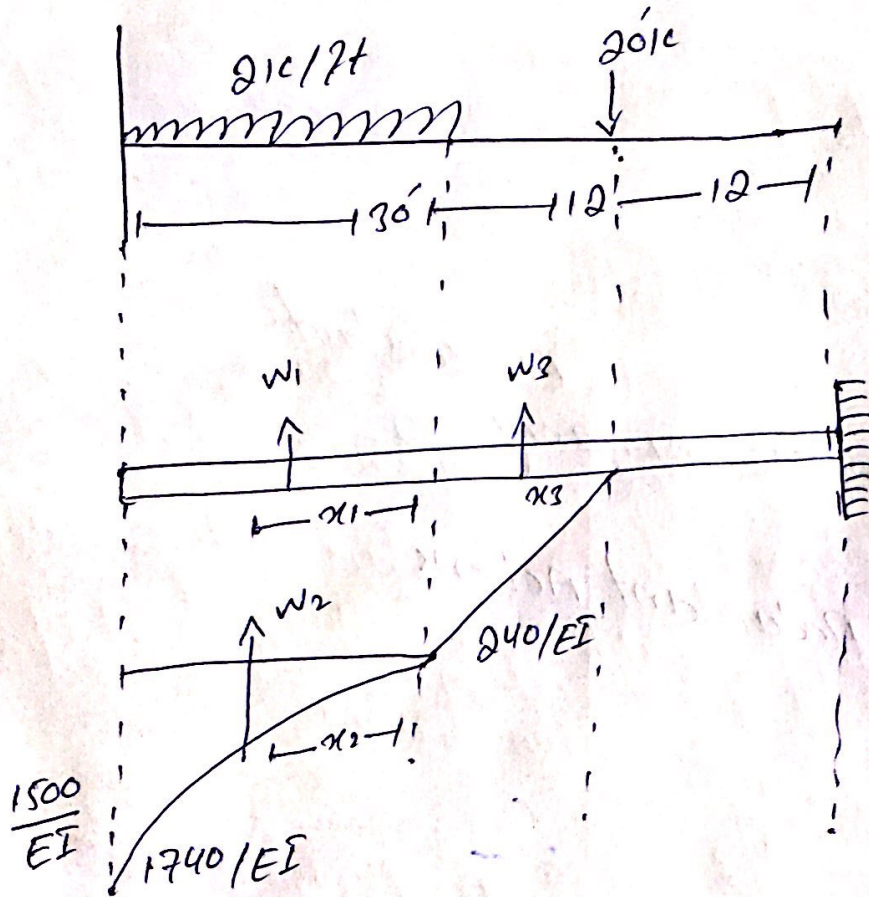 2k/ft
20k
30'
12'
12
W1
W3
x1
x3
W2
240/EI
x2
1500
EI
1740/EI